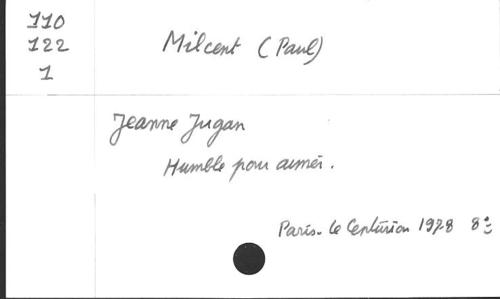 110
122
1
Milcent (Paul)
Jeanne Jugan
Humble pour aimer.
Paris - Le Centurion 1978 8°